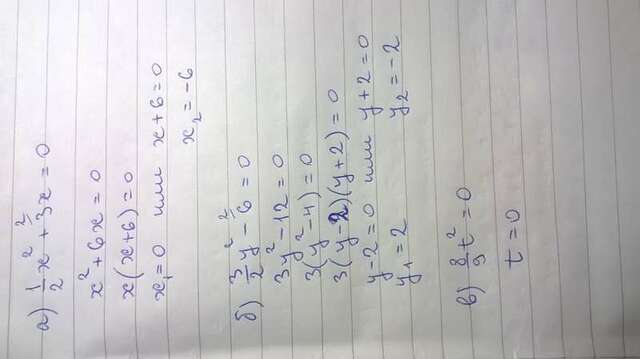 а) 1/2 x² + 3x = 0
x² + 6x = 0
x(x+6) = 0
x₁ = 0 или x+6 = 0
x₂ = -6
б) 3/2 y² - 6 = 0
3y² - 12 = 0
3(y² - 4) = 0
3(y-2)(y+2) = 0
y-2 = 0 или y+2 = 0
y₁ = 2 y₂ = -2
в) 8/9 t² = 0
t = 0